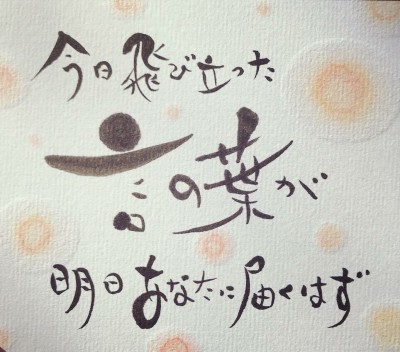 今日飛び立った
言の葉が
明日あなたに届くはず